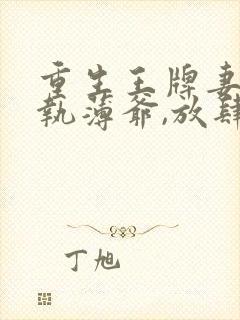 重生王牌妻
執薄爺,放肆
丁旭